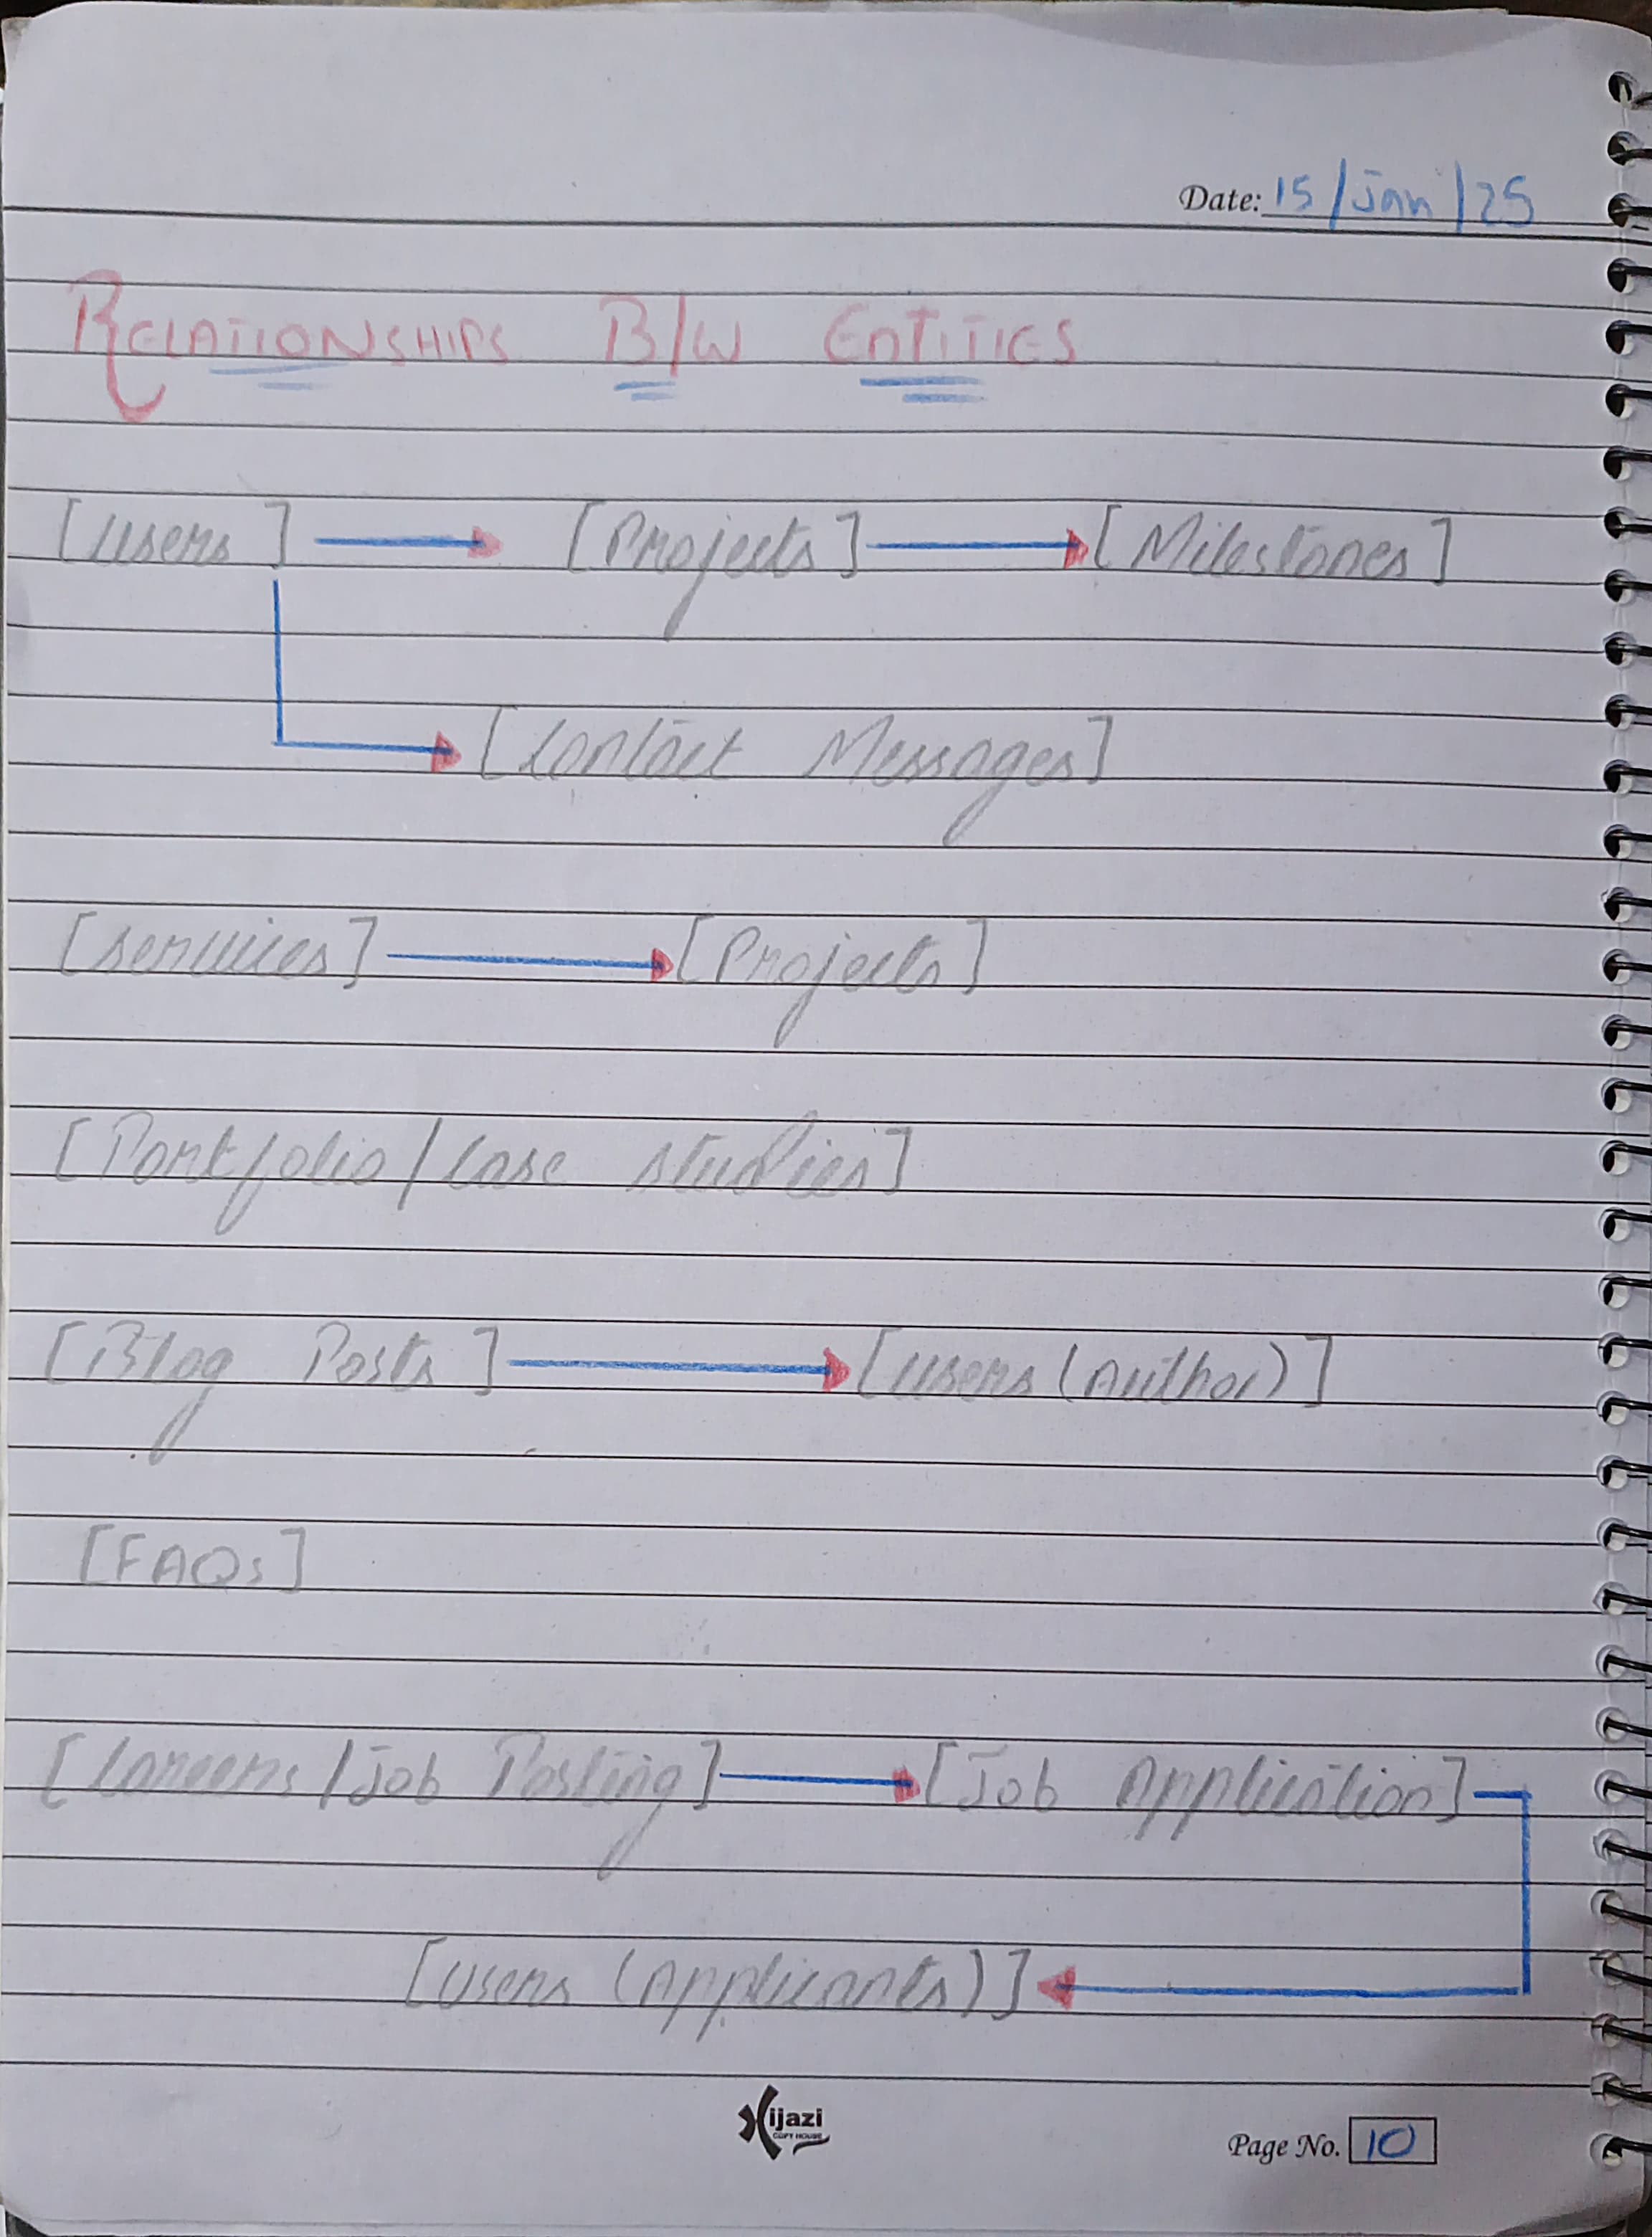 Date: 15/Jan/25
RELATIONSHIPS B/W ENTITIES
[Users] [Projects] [Milestones]
[Contact Messages]
[Services] [Projects]
[Portfolio/Case Studies]
[Blog Posts] [Users (Author)]
[FAQs]
[Careers/Job Posting] [Job Application]
[Users (Applicants)]
Hijazi
COPY HOUSE
Page No. 10